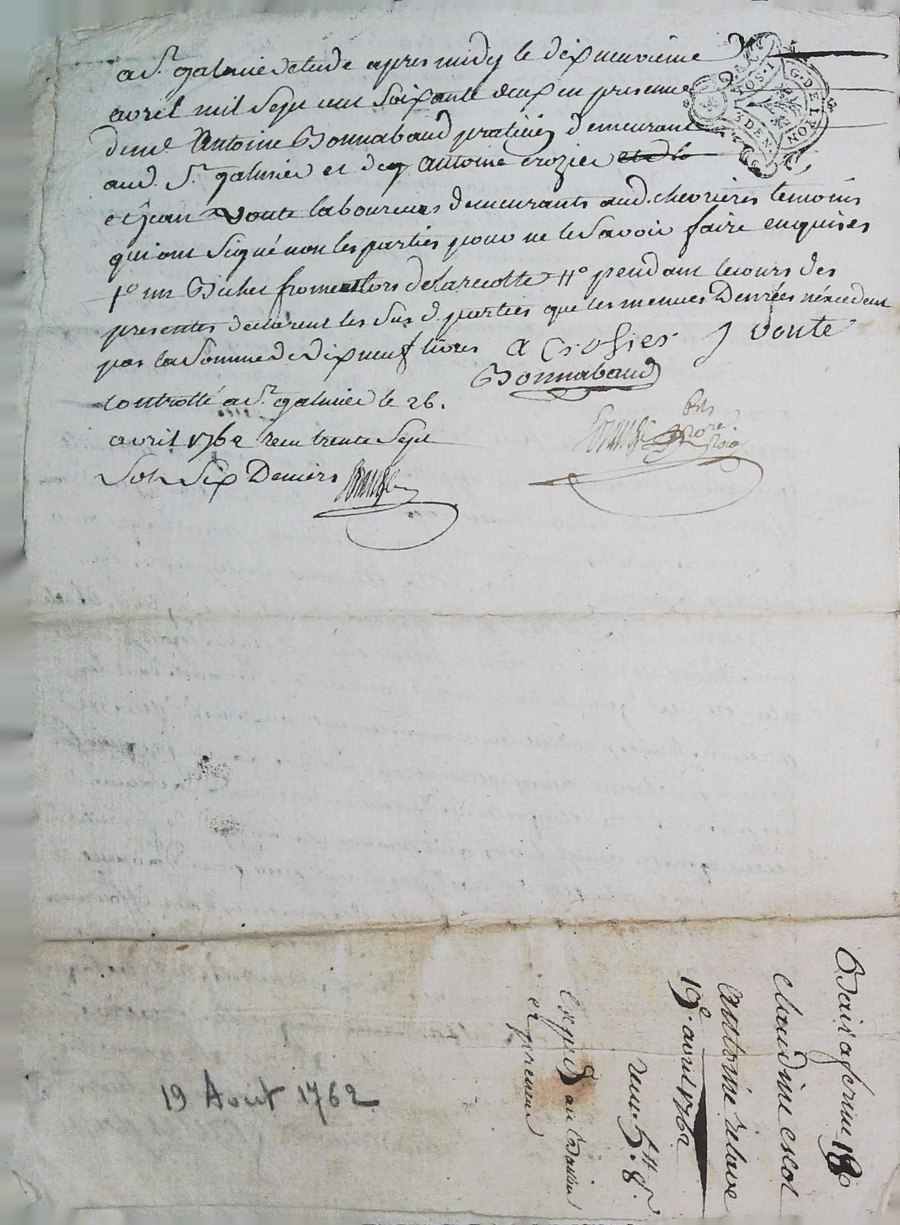 a St. galmier etude apres midy le dix neuvieme
avril mil Sept cent Soixante deux en presence
de me. Antoine Bonnabaud praticien demeurant
aud. St. galmier et de Antoine crozier et de
et jean Vonte laboureurs demeurants aud. chevrieres temoins
qui ont Signé non les parties pour ne le Savoir faire enquises
1º un Bichet froment lors de la recolte 11º pendant le cours des
presentes declarent les Susd. parties que les menues Denrées n'excedent
pas la Somme de dix neuf livres
a Crosier J vonte
Bonnabaud
controllé a St. galmier le 26.
avril 1762 recu trente Sept
Sols Six Deniers
G. DE LION
3 DEN.
Bail a ferme
claudine escot
antoine relave
19e. avril 1762
exped. au Bailleur
et preneur
19 Aout 1762